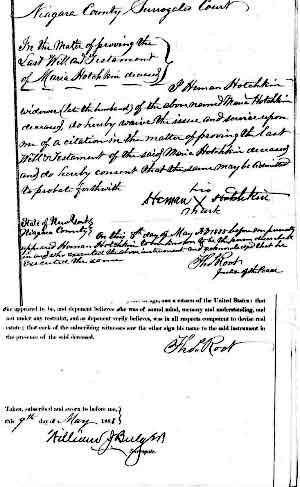 Niagara County Surrogates Court
In the Matter of proving the
Last Will and Testament
of Maria Hotchkin deceased
I Heman Hotchkin
widower (late husband) of the above named Maria Hotchkin
deceased, do hereby waive the issue and service upon
me of a citation in the matter of proving the Last
Will & Testament of the said Maria Hotchkin deceased
and do hereby consent that the same may be admitted
to probate forthwith
his
Heman X Hotchkin
mark
State of New York
Niagara County
On this 8th day of May AD 1888 before me personally
appeared Heman Hotchkin to me known to be the person described
in and who executed the above instrument and acknowledged that he
executed the same
Thos Root
Justice of the Peace
age, and a citizen of the United States: that
she appeared to be, and deponent believes she was of sound mind, memory and understanding, and
not under any restraint, and as deponent verily believes, was in all respects competent to devise real
estate; that each of the subscribing witnesses saw the other sign his name to the said instrument in
the presence of the said deceased.
Thos Root
Taken, subscribed and sworn to before me,
this 9th day of May 1888
William J